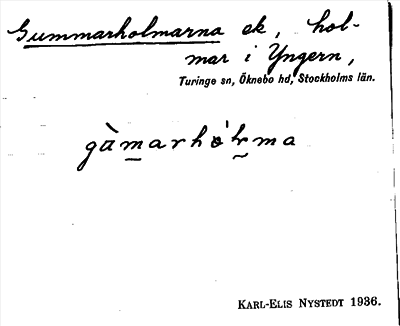 Gummarholmarna ek, hol-
mar i Yngern,
Turinge sn, Öknebo hd, Stockholms län.
gàm̲arhólma
KARL-ELIS NYSTEDT 1936.